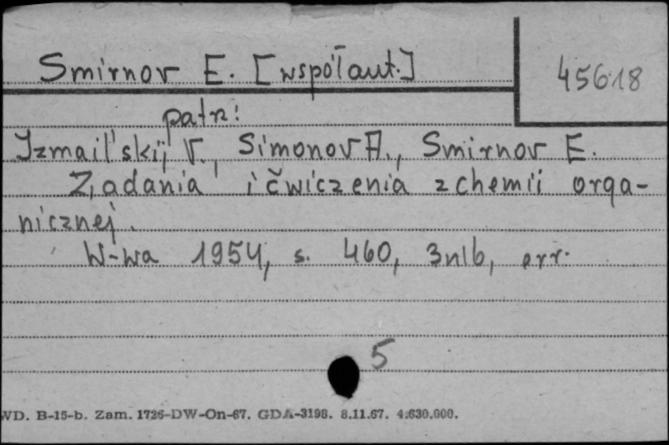 Smirnov E. [współaut.]
45618
patrz:
Izmail'skij V., Simonov A., Smirnov E.
Zadania i ćwiczenia z chemii orga-
nicznej.
W-wa 1954, s. 460, 3nlb, err.
5
WD. B-15-b. Zam. 1726-DW-On-67. GDA-3198. 8.11.67. 4.630.000.